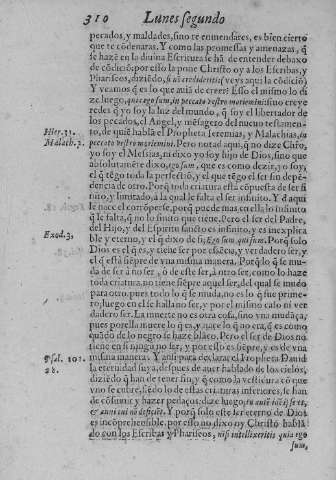 310 Lunes segundo
pecados, y maldades, sino te enmendares, es bien cierto
que te cōdenaras. Y como las promessas y amenazas, q̄
se hazē en la divina Escritura se hā de entender debaxo
de cōdiciō: por esso la pone Christo oy a los Escribas, y
Phariseos, diziēdo, si nō credideritis (veys aqui la cōdiciō)
Y veamos q̄ es lo que auiā de creer? Esso el mismo lo di
ze luego, quia ego sum, in peccato vestro moriemini: sino creye
redes q̄ yo soy la luz del mundo, q̄ soy el libertador de
los pecados, el Angel, y mēsagero del nueuo testamen-
Hier. 31. to, de quiē hablā el Propheta Jeremias, y Malachias, in
Malach. 3. peccato vestro moriemini. Pero notad aqui, q̄ no dize Christo,
yo soy el Messias, ni dixo yo soy hijo de Dios, sino que
absolutamēte dixo, ego sum, que es como dezir, yo soy
el q̄ tēgo toda la perfectiō, y el que tēgo el ser sin depē-
dencia de otro. Porq̄ toda criatura està cōpuesta de ser fi
nito, y limitado, à la qual le falta el ser infinito. Y de aqui
le nace el corrōperse, porq̄ puede mas en ella lo infinito
q̄ le falta, q̄ no lo finito que tiene. Pero el ser del Padre,
del Hijo, y del Espiritu sancto es infinito, y es inexplica
Exod. 3. ble, y eterno, y el q̄ dixo de si; Ego sum qui sum. Porq̄ solo
Dios es el q̄ es, y tiene ser por essēcia, y verdadero ser, y
el q̄ està siēpre de vna misma manera. Porq̄ lo q̄ se mu-
da de ser à no ser, o de este ser, à otro ser, como lo haze
toda criatura, no tiene siēpre aquel ser, del qual se mudò
para otro, pues todo lo q̄ se muda, no es lo q̄ fue prime-
ro; luego en el se halla no ser, y por el mismo caso ni ver
dadero ser. La muerte no es otra cosa, sino vna mudāça,
pues por ella muere lo q̄ es, y nace lo q̄ no era, q̄ es como
quādo de lo negro se haze blāco. Pero el ser de Dios no
tiene en si ningū no ser, y por esso es siēpre, y es de vna
Psal. 101. misma manera. Y ansi para declarar el Propheta Dauid
28. la eternidad suya, despues de auer hablado de los cielos,
diziēdo q̄ han de tener fin, y q̄ como la vestidura cō que
vno se cubre, siēdo lo de ellas criaturas inferiores, se han
de cōsumir y hazer pedaços, dize luego, tu autē idē ipse es,
& anni tui nō deficiēt. Y porq̄ solo este ser eterno de Dios
es incōprehensible, por esso no dixo oy Christo hablā
do con los Escribas y Phariseos, nisi intellexeritis quia ego
sum,